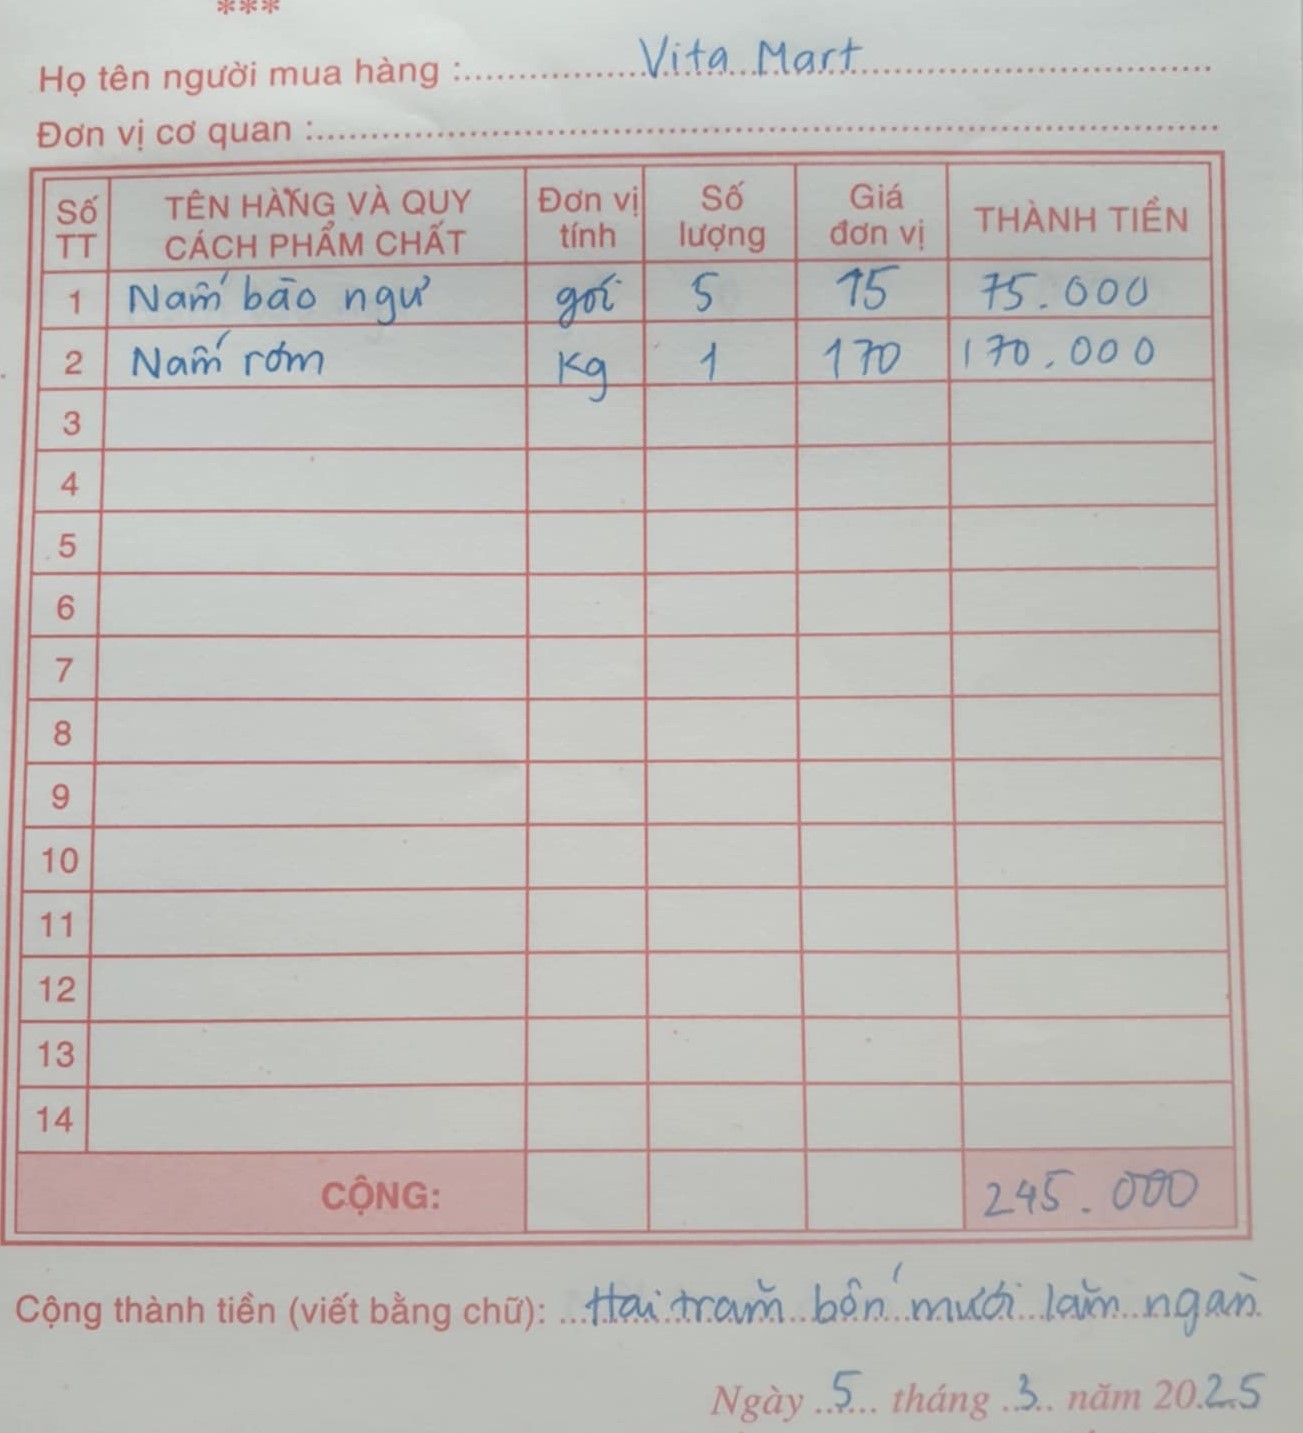 ***
Họ tên người mua hàng : Vita Mart
Đơn vị cơ quan :
Số TT TÊN HÀNG VÀ QUY CÁCH PHẨM CHẤT Đơn vị tính Số lượng Giá đơn vị THÀNH TIỀN
1 Nấm bào ngư gói 5 15 75.000
2 Nấm rơm Kg 1 170 170.000
3
4
5
6
7
8
9
10
11
12
13
14
CỘNG: 245.000
Cộng thành tiền (viết bằng chữ): Hai trăm bốn mươi lăm ngàn
Ngày 5 tháng 3 năm 2025